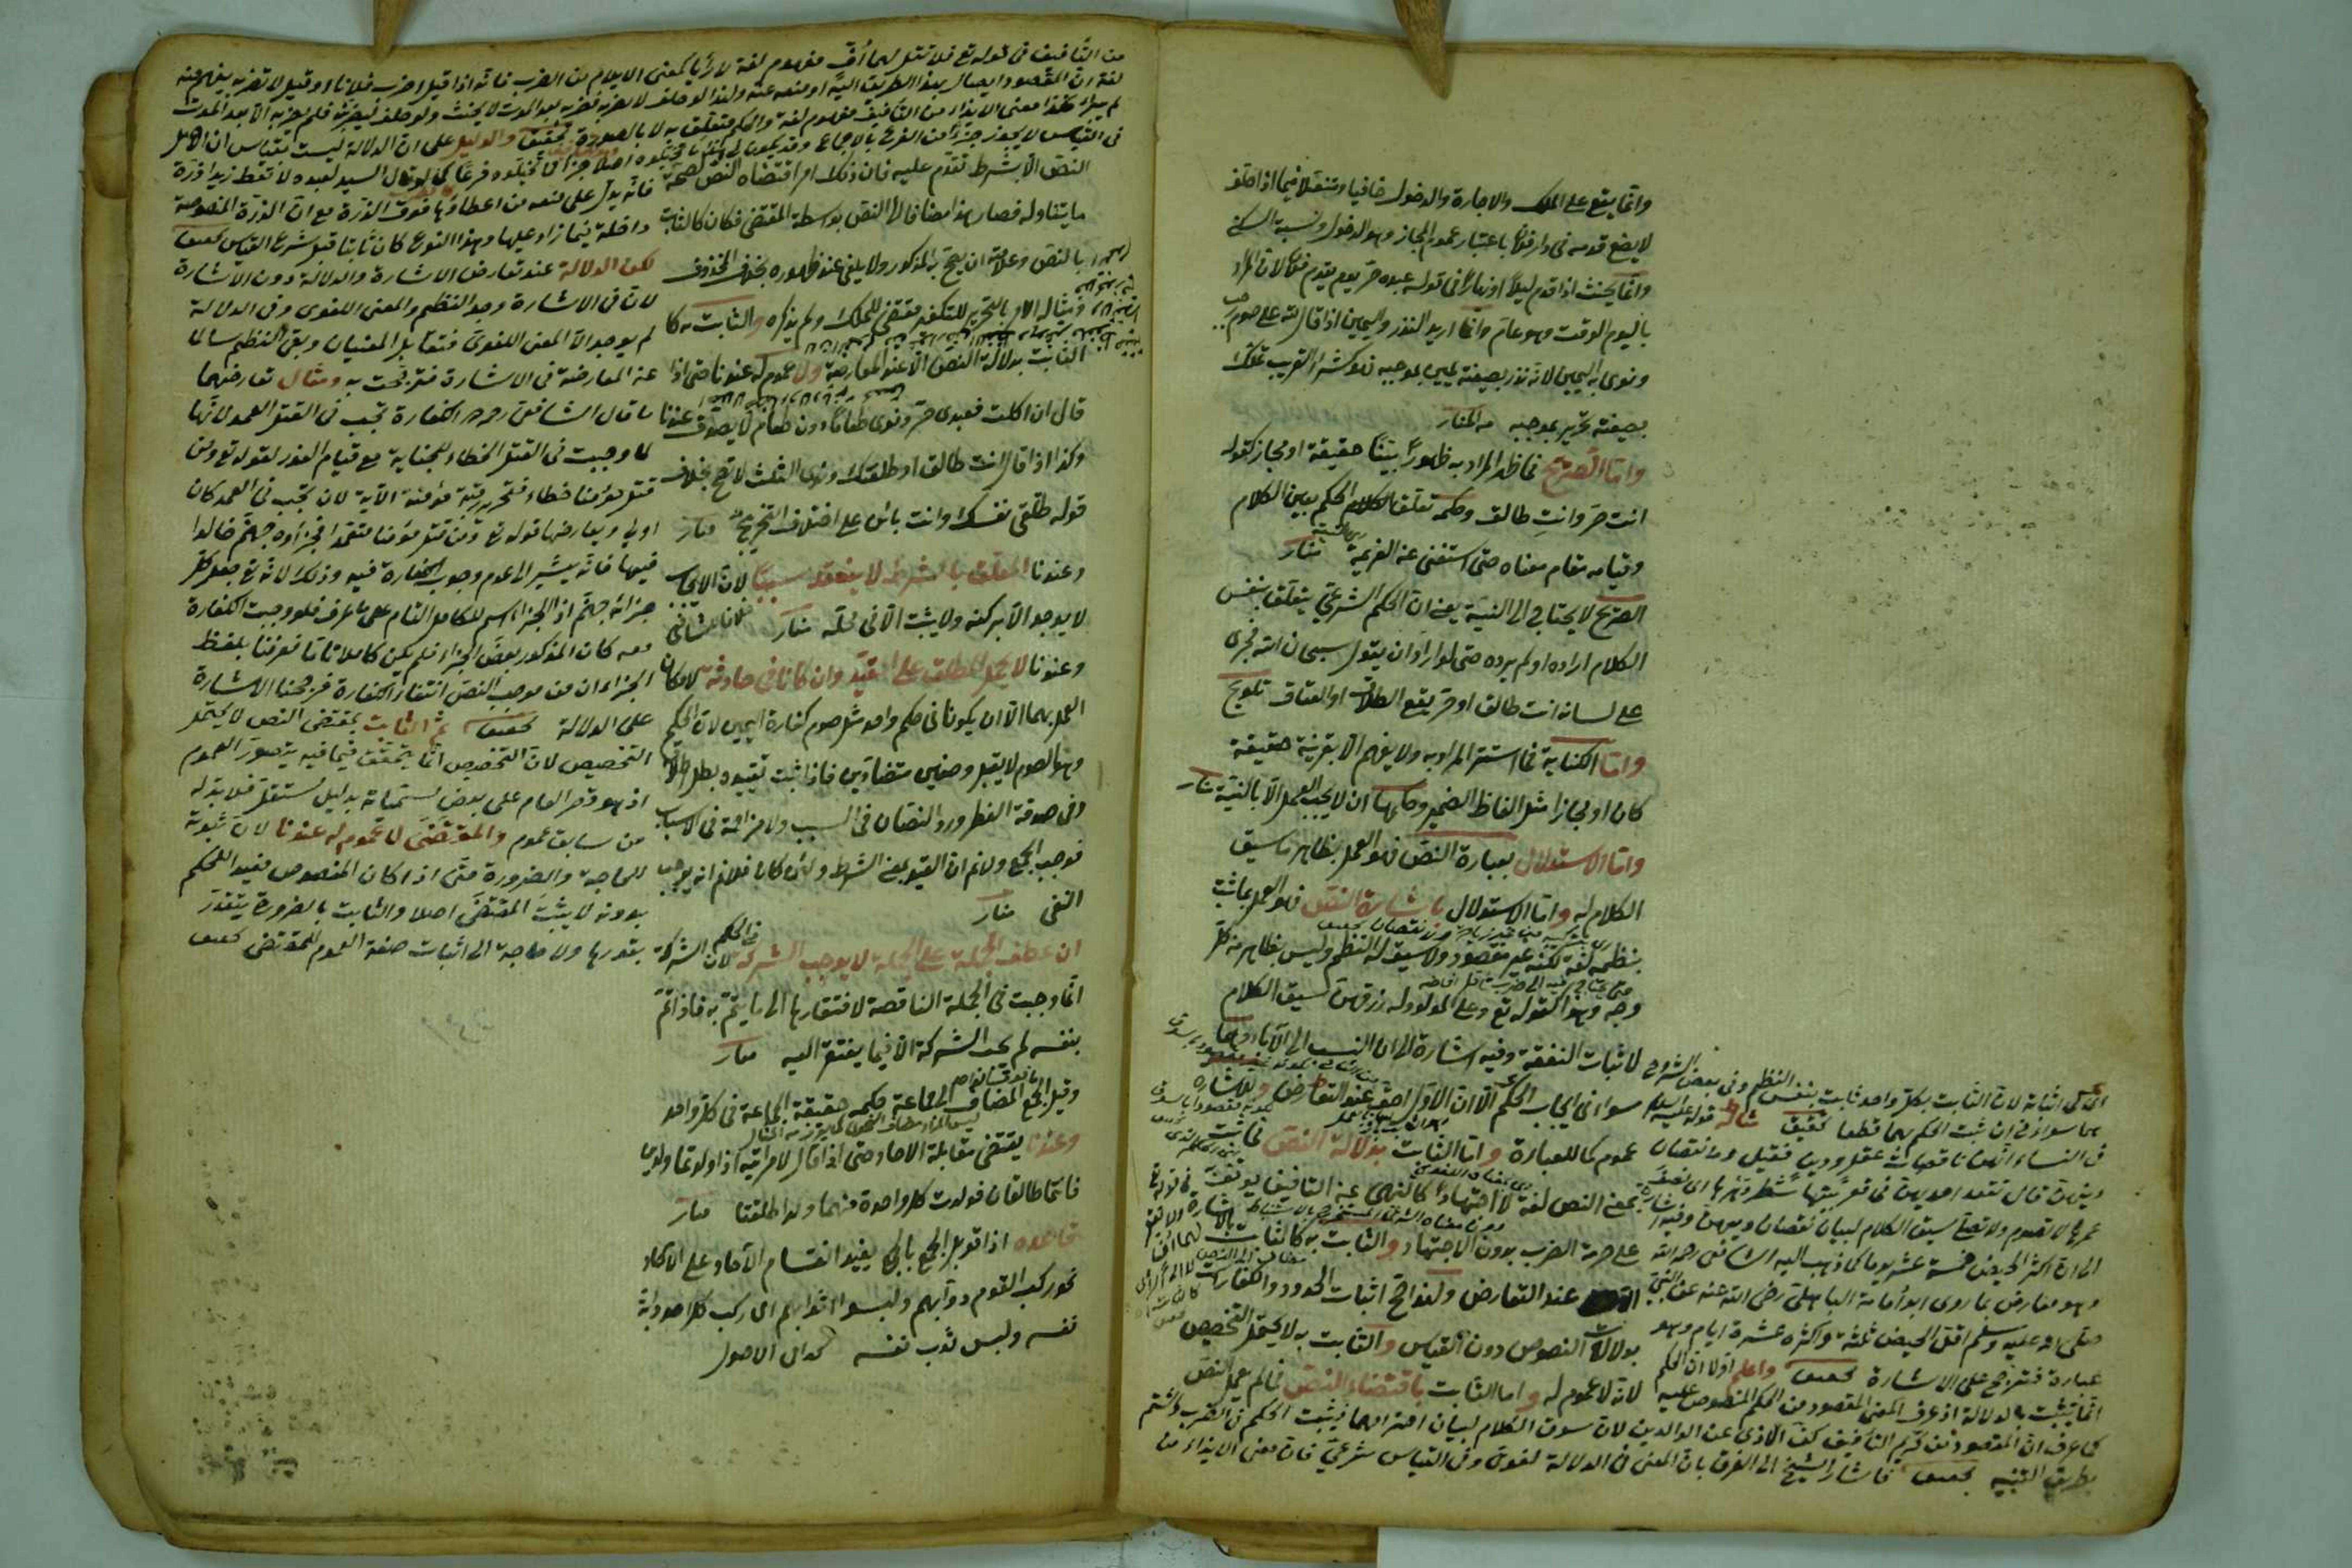 وانما يقع على الملك والاجارة والدخول حافيا ومتنعلا فيما اذا حلف
لا يضع قدمه فى دار فلان باعتبار عموم المجاز وهو الدخول ونسبة السكنى
وانما يحنث اذا قدم ليلا او نهارا فى قوله عبده حر يوم يقدم فلان لان المراد
باليوم الوقت وهو عام وانما اريد النذر واليمين اذا قال لله على صوم رجب
ونوى به اليمين لانه نذر بصيغته يمين بموجبه فهو كشراء القريب تملك
بصيغته تحرير بموجبه من المنار
واما الصريح فما ظهر المراد به ظهورا بينا حقيقة او مجازا كقوله
انت حر وانت طالق وحكمه تعلق الحكم بعين الكلام
وقيامه مقام معناه حتى استغنى عن العزيمة منار
الصريح لا يحتاج الى النية يعنى ان الحكم الشرعى يتعلق بنفس
الكلام اراده او لم يرده حتى لو اراد ان يقول سبحان الله فجرى
على لسانه انت طالق او حر يقع الطلاق او العتاق تلويح
واما الكناية فما استتر المراد به ولا يفهم الا بقرينة حقيقة
كان او مجازا مثل الفاظ الضمير وحكمها ان لا يجب العمل الا بالنية منار
واما الاستدلال بعبارة النص فهو العمل بظاهر ما سيق
الكلام له واما الاستدلال باشارة النص فهو العمل بما ثبت
بنظمه لغة لكنه غير مقصود ولا سيق له النظم وليس بظاهر من كل
وجه وهذا كقوله تع وعلى المولود له رزقهن سيق الكلام
لاثبات النفقة وفيه اشارة الى ان النسب الى الآباء وهما
سواء فى ايجاب الحكم الا ان الاول احق عند التعارض وللاشارة
عموم كما للعبارة واما الثابت بدلالة النص فما ثبت
بمعنى النص لغة لا اجتهادا كالنهى عن التافيف يوقف به
على حرمة الضرب بدون الاجتهاد والثابت به كالثابت بالاشارة
عند التعارض ولهذا صح اثبات الحدود والكفارات
بدلالات النصوص دون القياس والثابت به لا يحتمل التخصيص
لانه لا عموم له واما الثابت باقتضاء النص فما لم يعمل النص
فى اثباته لان الثابت بكل واحد ثابت بنفس النظم وفى بعض الشروح
هما سواء فى ان يثبت الحكم بهما قطعا تحقيق مثاله قوله عليه السلام
فى النساء انهن ناقصات عقل ودين فقيل وما نقصان
دينهن قال تقعد احديهن فى قعر بيتها شطر دهرها اى نصف
عمرها لا تصوم ولا تصلى سيق الكلام لبيان نقصان دينهن وفيه اشارة
الى ان اكثر الحيض خمسة عشر يوما كما ذهب اليه الشافعى رحمه الله
وهو معارض بما روى ابو امامة الباهلى رضى الله عنه عن النبى
صلى الله عليه وسلم اقل الحيض ثلثة واكثره عشرة ايام وهو
عبارة فترجح على الاشارة تحقيق واعلم اولا ان الحكم
انما يثبت بالدلالة اذ عرف المعنى المقصود من الحكم المنصوص عليه
كما عرف ان المقصود من تحريم التافيف كف الاذى عن الوالدين لان سوق الكلام لبيان احترامهما فيثبت الحكم فى الضرب والشتم
بطريق التنبيه تحقيق فاشار الشيخ الى الفرق بان المعنى فى الدلالة لغوى وفى القياس شرعى فان معنى الايذاء من
من التافيف فى قوله تع فلا تقل لهما اف مفهوم لغة لا رأيا كمعنى الايلام من الضرب فانه اذا قيل اضرب فلانا او قيل لا تضربه يفهم منه
لغة ان المقصود ايصال بهذا الطريق اليه او منعه عنه ولهذا لو حلف لا يضربه فضربه بعد الموت لا يحنث ولو حلف ليضربنه فلم يضربه الا بعد الموت
لم يبر فكذا معنى الايذاء من التافيف مفهوم لغة والحكم متعلق به لا بالصورة تحقيق والدليل على ان الدلالة ليست بقياس ان الاصل
فى القياس لا يجوز جزءا من الفرع بالاجماع وقد يكون
النص الا بشرط تقدم عليه فان ذلك امر اقتضاه النص لصحة
ما يتناوله فصار هذا مضافا الى النص بواسطة المقتضى فكان كالثابت
بالنص وعلامته ان يصح به المذكور ولا يلغى عند ظهوره بخلاف المحذوف
ومثاله الامر بالتحرير للتكفير مقتضى للملك ولم يذكره والثابت به كا
الثابت بدلالة النص الا عند المعارضة ولا عموم له عندنا حتى اذا
قال ان اكلت فعبدى حر ونوى طعاما دون طعام لا يصدق عندنا
وكذا اذا قال انت طالق او طلقتك ونوى الثلث لا تصح بخلاف
قوله طلقى نفسك وانت بائن على اختلاف التخريج منار
وعندنا المعلق بالشرط لا ينعقد سببا لان الايجاب
لا يوجد الا بركنه ولا يثبت الا فى محله منار خلافا للشافعى
وعندنا لا يحمل المطلق على المقيد وان كانا فى حادثة لامكان
العمل بهما الا ان يكونا فى حكم واحد مثل صوم كفارة اليمين لان الحكم
وهو الصوم لا يقبل وصفين متضادين فاذا ثبت تقييده بطل اطلاقه
وفى صدقة الفطر ورد النصان فى السبب ولا مزاحمة فى الاسباب
فوجب الجمع ولا نم ان القيد بمعنى الشرط ولئن كان فلا نم انه يوجب
النفى منار
ان عطف الجملة على الجملة لا يوجب الشركة فى الحكم لان الشركة
انما وجبت فى الجملة الناقصة لافتقارها الى ما يتم به فاذا تم
بنفسه لم تجب الشركة الا فيما يفتقر اليه منار
وقيل الجمع المضاف الى جماعة حكمه حقيقة الجماعة فى كل واحد
وعندنا يقتضى مقابلة الآحاد حتى اذا قال لامرأتيه اذا ولدتما ولدين
فانتما طالقان فولدت كل واحدة منهما ولدا طلقتا منار
قاعده اذا قوبل الجمع بالجمع يفيد انقسام الآحاد على الآحاد
نحو ركب القوم دوابهم ولبسوا اثوابهم اى ركب كل احد دابة
نفسه ولبس ثوب نفسه
السيد لعبده لا تعط زيدا ذرة
فانه يدل على منعه من اعطاء ما فوق الذرة مع ان الذرة المنصوصة
داخلة فيما زاد عليها وهذا النوع كان ثابتا قبل شرع القياس تحقيق
لكن الدلالة عند تعارض الاشارة والدلالة دون الاشارة
لان فى الاشارة وجد النظم والمعنى اللغوى وفى الدلالة
لم يوجد الا المعنى اللغوى فتقابل المعنيان وبقى النظم سالما
عن المعارضة فى الاشارة فترجحت به ومثال تعارضهما
ما قال الشافعى رحمه الله الكفارة تجب فى القتل العمد لانها
لما وجبت فى القتل الخطاء للجناية مع قيام العذر لقوله تع ومن
قتل مؤمنا خطاء فتحرير رقبة مؤمنة الآية لان تجب فى العمد كان
اولى ويعارضها قوله تع ومن قتل مؤمنا متعمدا فجزاؤه جهنم خالدا
فيها فانه يشير الى عدم وجوب الكفارة فيه وذلك لانه تع جعل كل
جزائه جهنم اذ الجزاء اسم للكامل التام على ما عرف فلو وجبت الكفارة
معه كان المذكور بعض الجزاء فلم يكن كاملا تاما فعرفنا بلفظ
الجزاء ان من موجب النص انتفاء الكفارة فرجحنا الاشارة
على الدلالة تحقيق ثم الثابت بمقتضى النص لا يحتمل
التخصيص لان التخصيص انما يتحقق فيما فيه يتصور العموم
اذ هو قصر العام على بعض مسمياته بدليل مستقل فلا بد له
من سابق عموم والمقتضى لا عموم له عندنا لان ثبوته
للحاجة والضرورة حتى اذا كان المنصوص مفيدا للحكم
بدونه لا يثبت المقتضى اصلا والثابت بالضرورة يتقدر
بقدرها ولا حاجة الى اثبات صفة العموم للمقتضى تحقيق